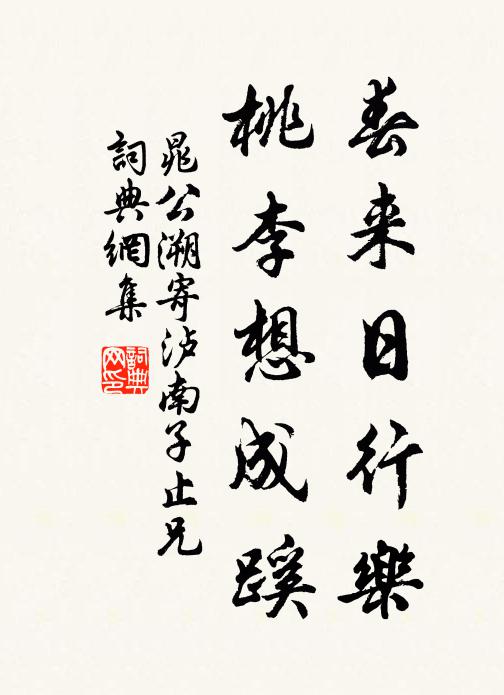 春来日行樂
桃李想成蹊
晁公溯寄泸南子止兄
詞典網集
詞典網印